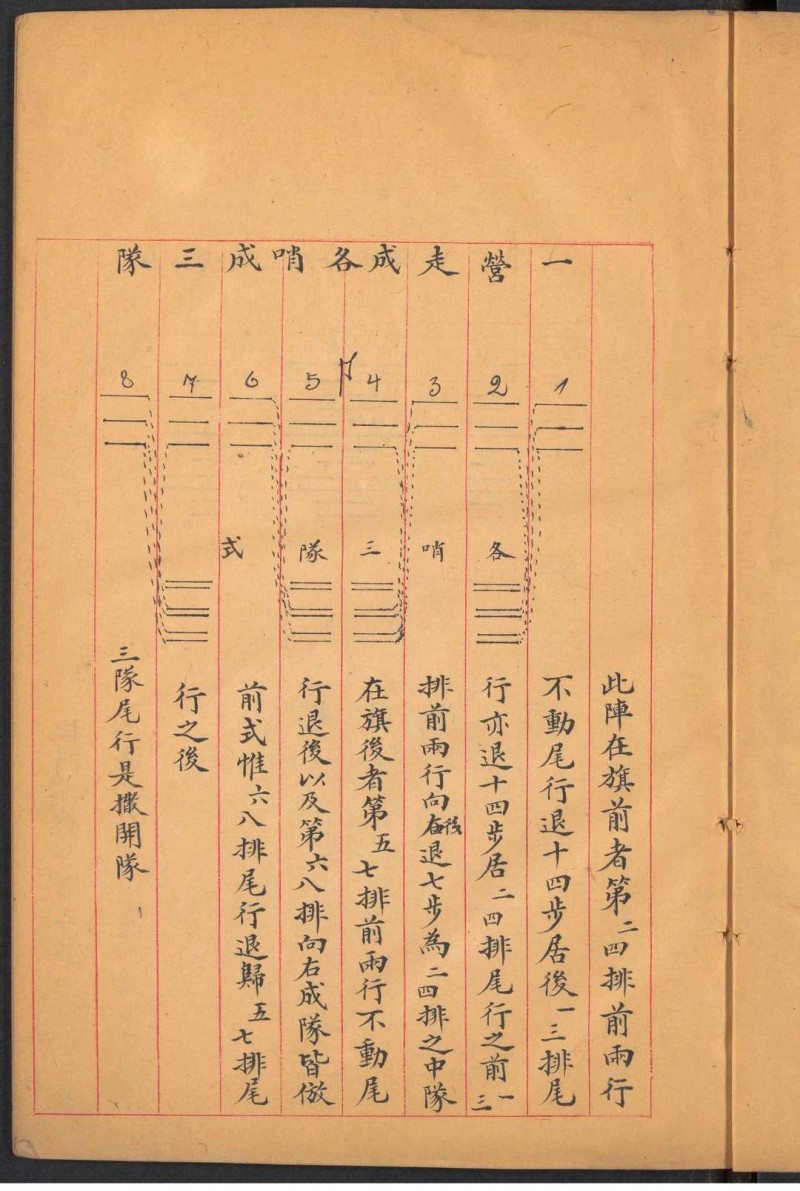 一營走成各哨成三隊
1 2 3 4 5 6 7 8
各哨三隊式
此陣在旗前者第二四排前兩行
不動尾行退十四步居後一三排尾
行亦退十四步居二四排尾行之前一三
排前兩行向右後退七步為二四排之中隊
在旗後者第五七排前兩行不動尾
行退後以及第六八排向右成隊皆倣
前式惟六八排尾行退歸五七排尾
行之後
三隊尾行是撒開隊